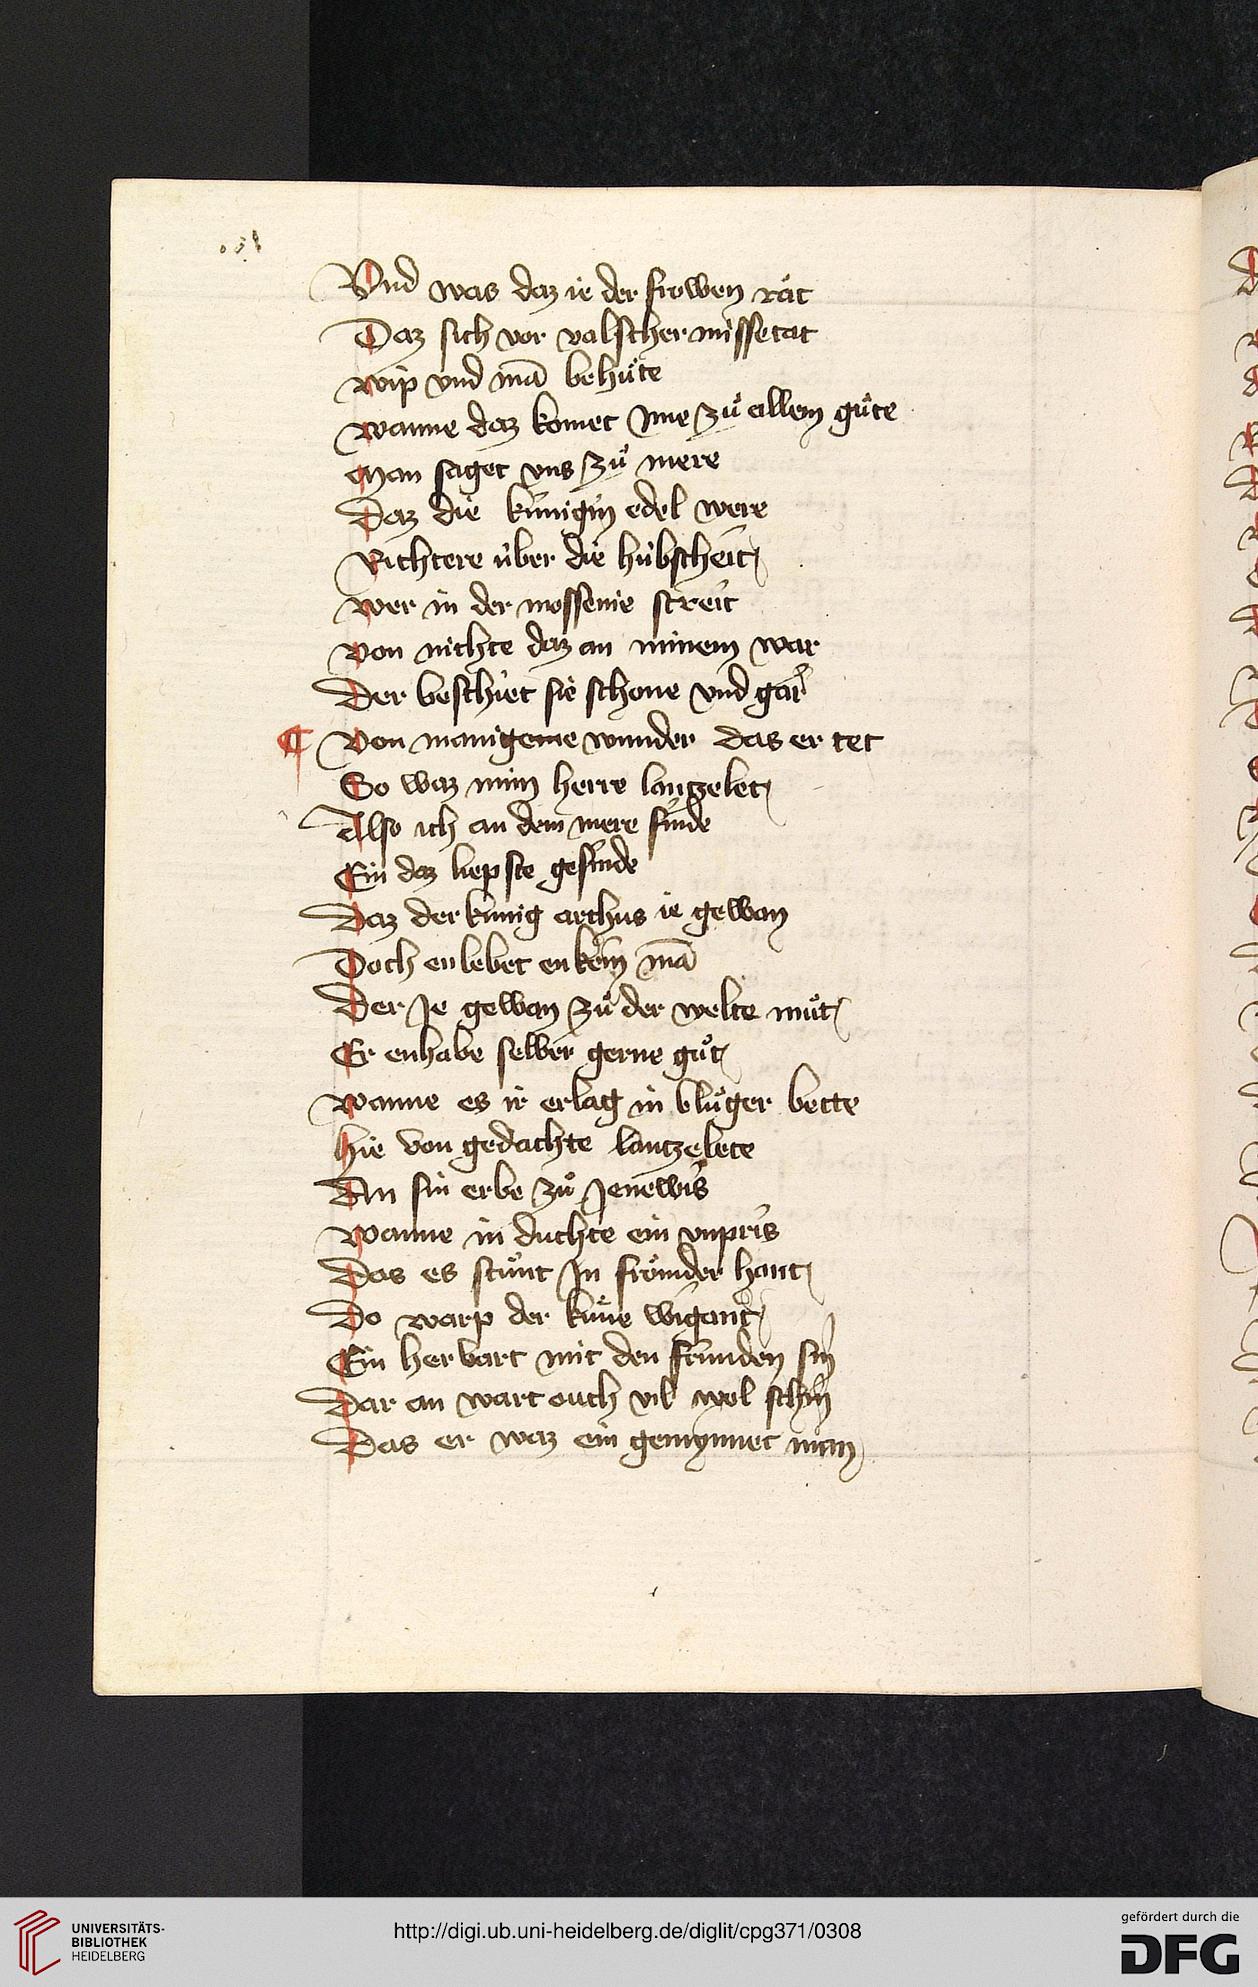 Vnd was daz ie der frowen rát
Daz sich vor valscher missetat
wip vnd mā behuͤte
wanne daz komet Ime zuͦ allem guͦte
Man saget vns zuͦ mere
Daz die kúnigin edel were
Richtere úber die húbscheit
wer in der massenie streit
von nichte daz an minem war
Der beschiet sie schone vnd gar
¶ Von manigeme wunder das er tet
So waz min herre lantzelet
Also ich an dem mere finde
Ein daz liepste gesinde
Daz der kúnig arthus ie gewan
Doch enlebet enkein mā
Der Je gewan zuͦ der welte muͦt
Er enhabe selber gerne guͦt
wanne es ir erlag in bluͦger bette
hie von gedachte lantzelete
An sin erbe zuͦ Jenewis
wanne in duchte ein vnpris
Das es stuͦnt In froͤmder hant
Do warp der kuͤne wigant
Ein hervart mit den frúnden sin
Dar an wart ouch vil wol schin
Das er waz ein gemynnet man
UNIVERSITÄTS-
BIBLIOTHEK
HEIDELBERG
http://digi.ub.uni-heidelberg.de/diglit/cpg371/0308
gefördert durch die
DFG